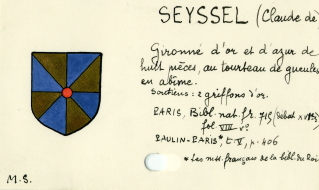 SEYSSEL (Claude de)
Gironné d'or et d'azur de
huit pièces, au tourteau de gueules
en abîme.
Soutiens : 2 griffons d'or.
PARIS, Bibl. nat. fr. 715
fol. VIII v°
PAULIN-PARIS*, t. V, p. 406
* Les mss. français de la bibl. du Roi
M.S.